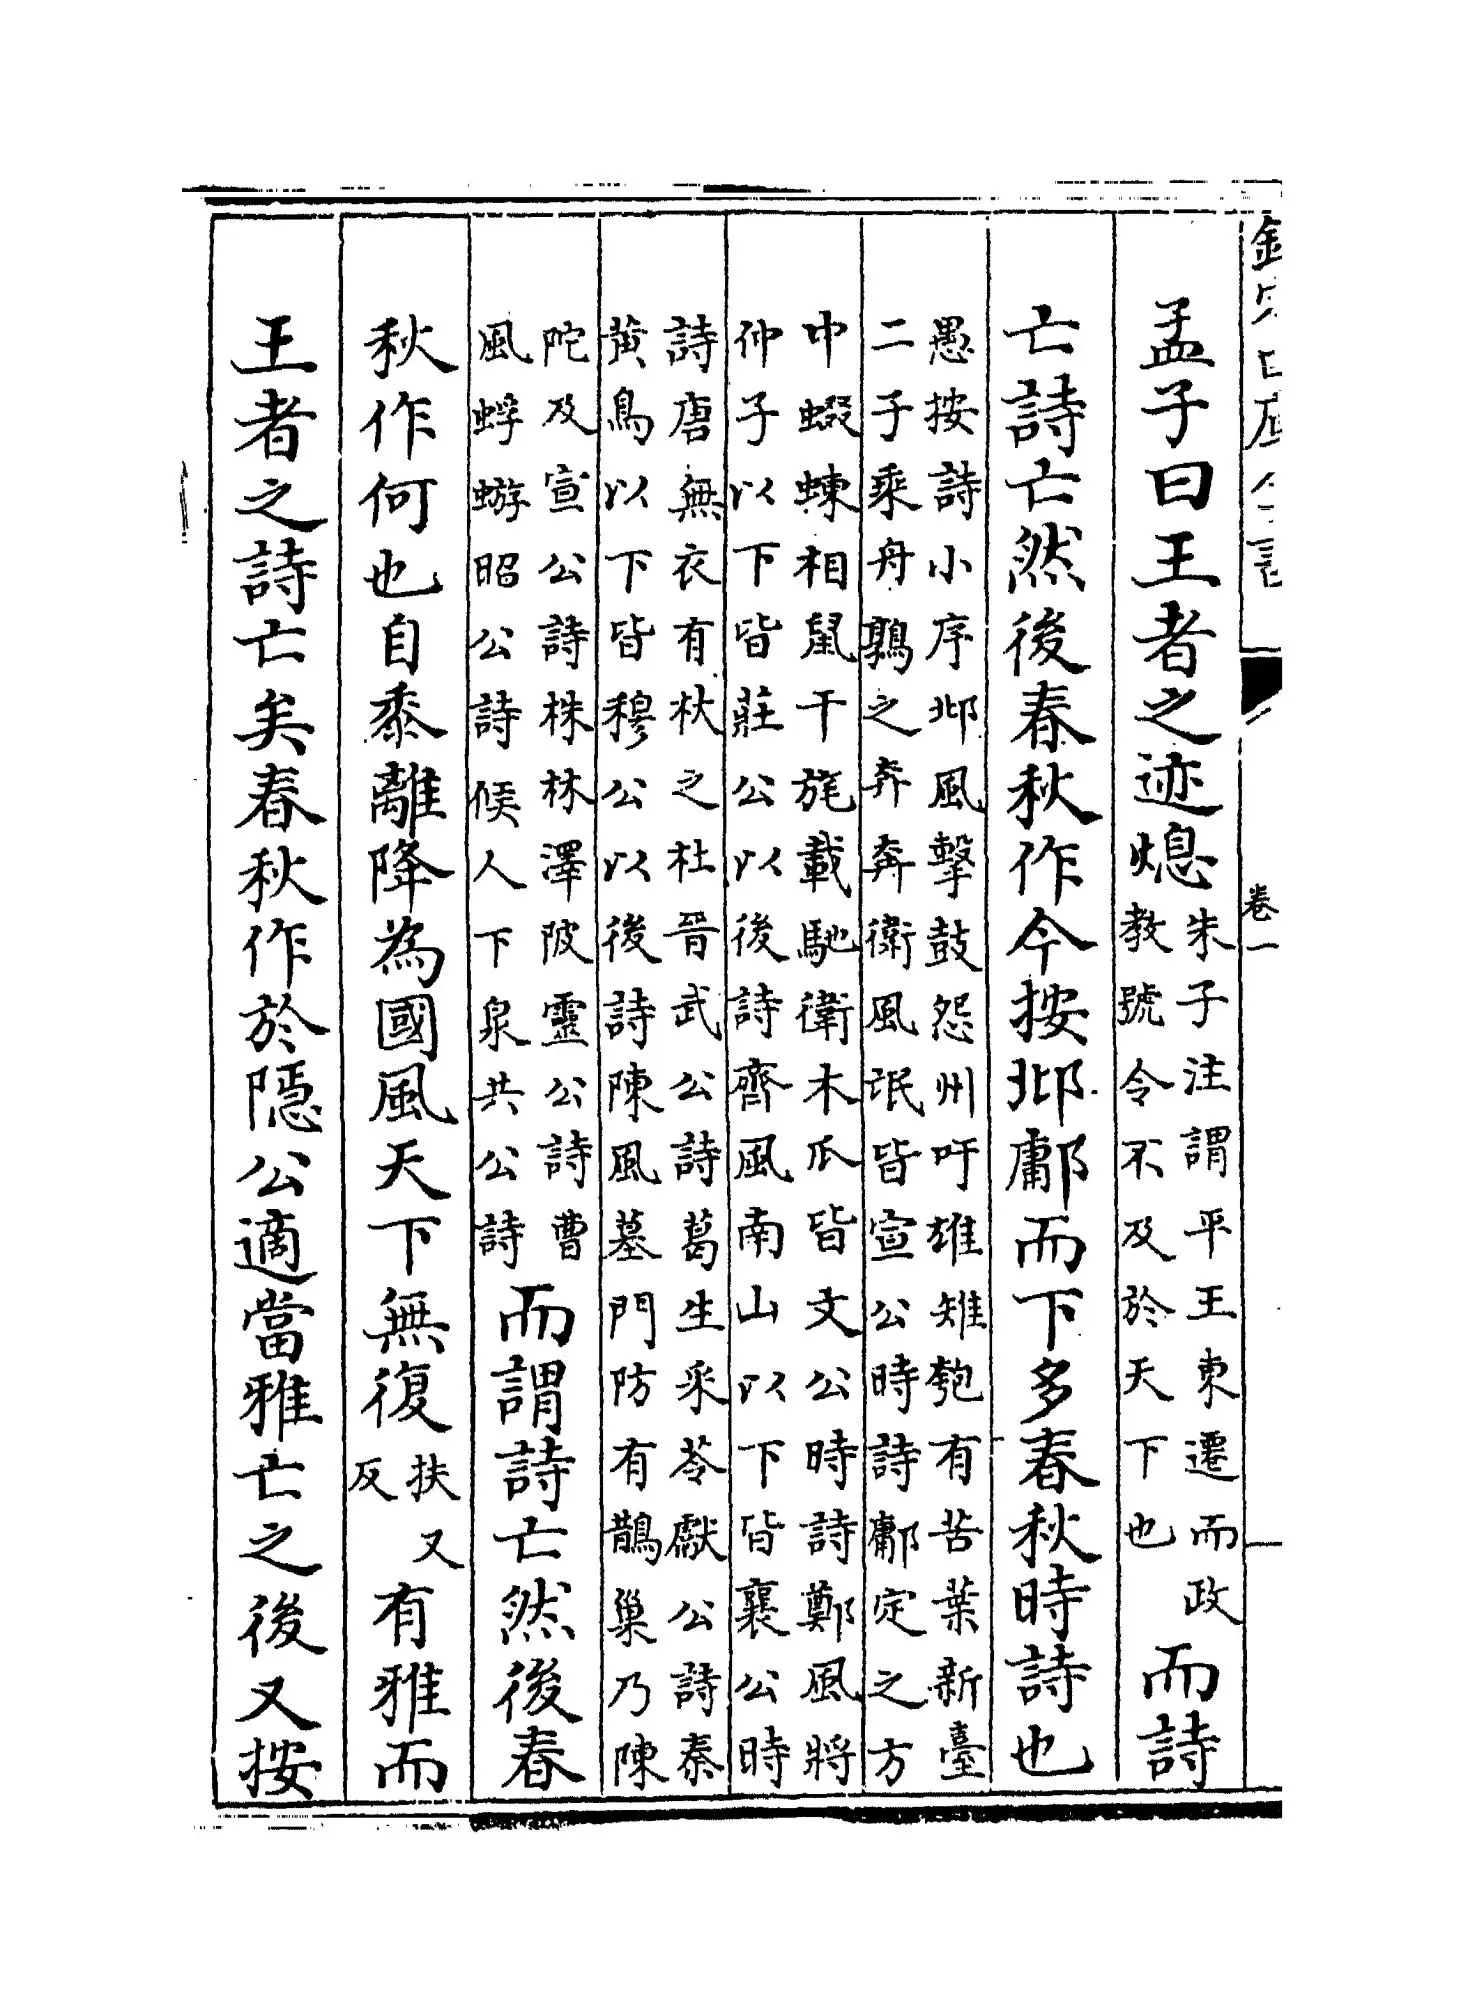 欽定四庫全書
卷一
孟子曰王者之迹熄
朱子注謂平王東遷而政
教號令不及於天下也
而詩
亡詩亡然後春秋作今按邶鄘而下多春秋時詩也
愚按詩小序邶風擊鼓怨州吁雄雉匏有苦葉新臺
二子乘舟鶉之奔奔衛風氓皆宣公時詩鄘定之方
中蝃蝀相鼠干旄載馳衛木瓜皆文公時詩鄭風將
仲子以下皆莊公以後詩齊風南山以下皆襄公時
詩唐無衣有杕之杜晉武公詩葛生采苓獻公詩秦
黄鳥以下皆穆公以後詩陳風墓門防有鵲巢乃陳
陀及宣公詩株林澤陂靈公詩曹
風蜉蝣昭公詩候人下泉共公詩
而謂詩亡然後春
秋作何也自黍離降為國風天下無復
扶又
反
有雅而
王者之詩亡矣春秋作於隱公適當雅亡之後又按